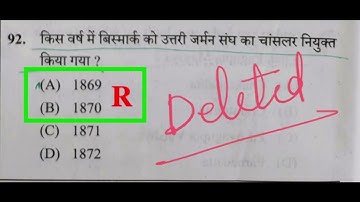 92. किस वर्ष में बिस्मार्क को उत्तरी जर्मन संघ का चांसलर नियुक्त
किया गया ?
(A) 1869
(B) 1870
R
Deleted
(C) 1871
(D) 1872